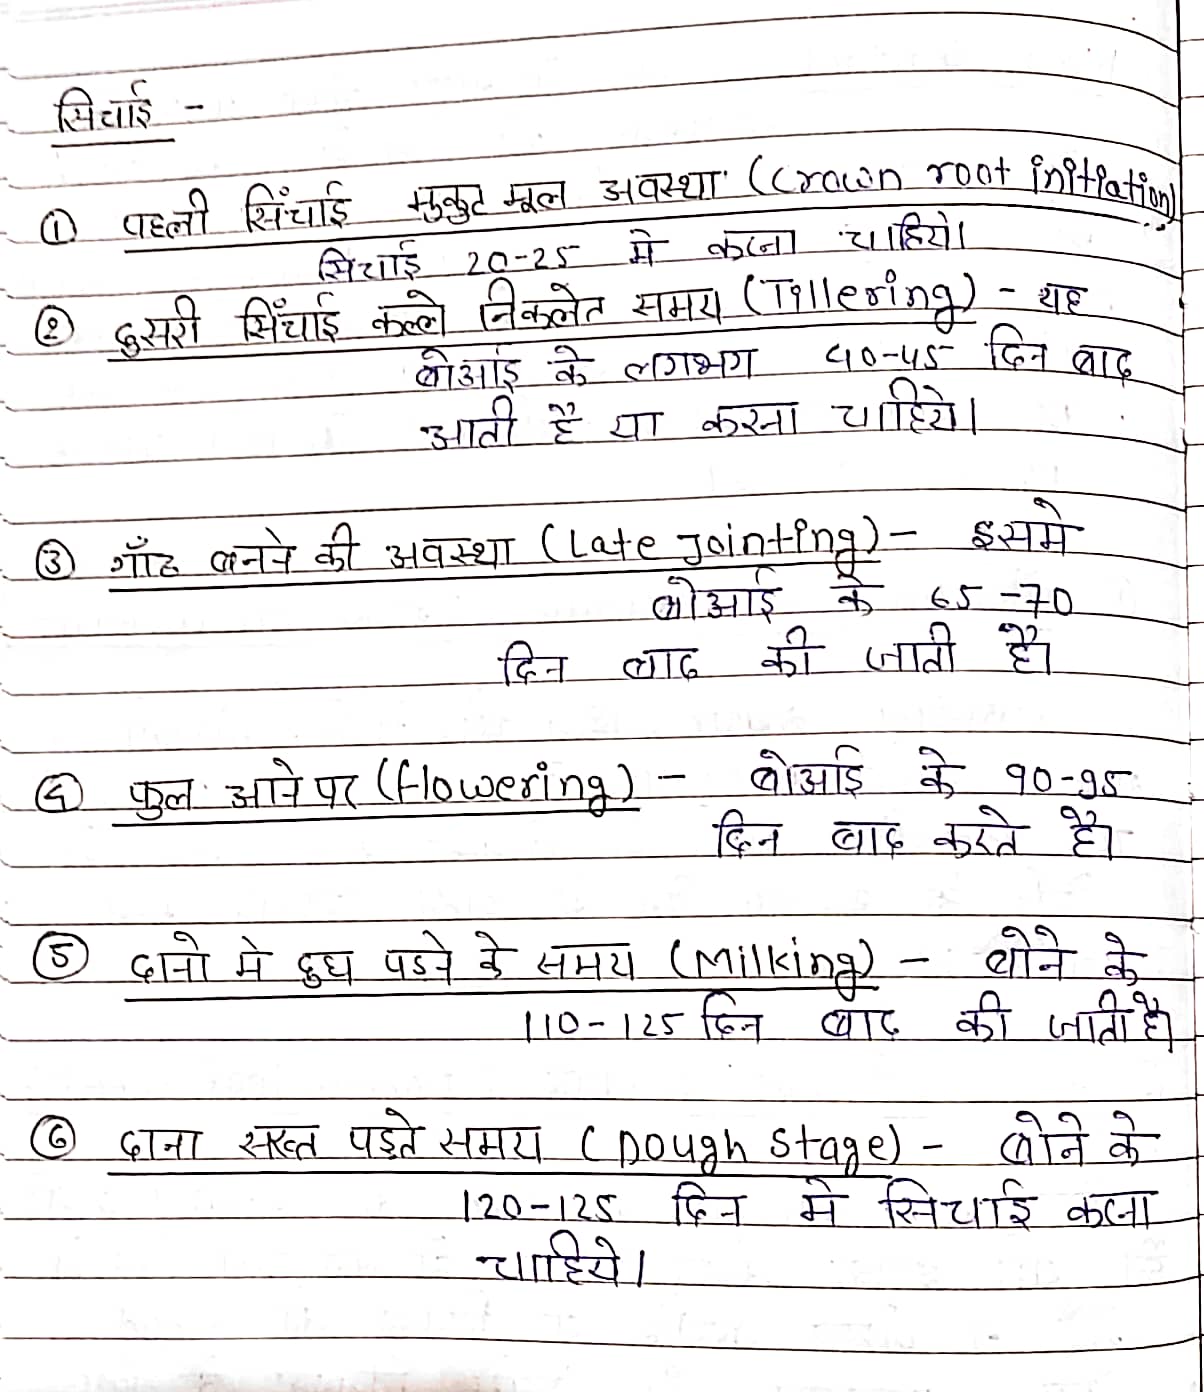 सिचाई -
① पहली सिंचाई मुकुट मूल अवस्था (Crown root initiation)
सिचाई 20-25 मे करना चाहिये।
② दुसरी सिंचाई कल्ले निकलेत समय (Tillering) - यह
बोआई के लगभग 40-45 दिन बाद
आती है या करना चाहिये।
③ गाँठ बनने की अवस्था (Late Jointing) - इसमे
बोआई के 65-70
दिन बाद की जाती है।
④ फुल आने पर (flowering) - बोआई के 90-95
दिन बाद करते है।
⑤ दानो मे दुध पडने के समय (Milking) - बोने के
110-125 दिन बाद की जाती है।
⑥ दाना सख्त पड़ते समय (Dough stage) - बोने के
120-125 दिन मे सिचाई करना
चाहिये।